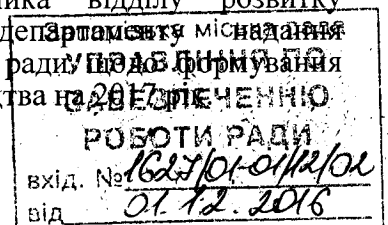 відділу розвитку
департаменту надання
ради щодо формування
на 2017 рік
міська рада
УПРАВЛІННЯ ПО
ЗАБЕЗПЕЧЕННЮ
РОБОТИ РАДИ
вхід. № 1627/01-01/12/02
від 01.12.2016